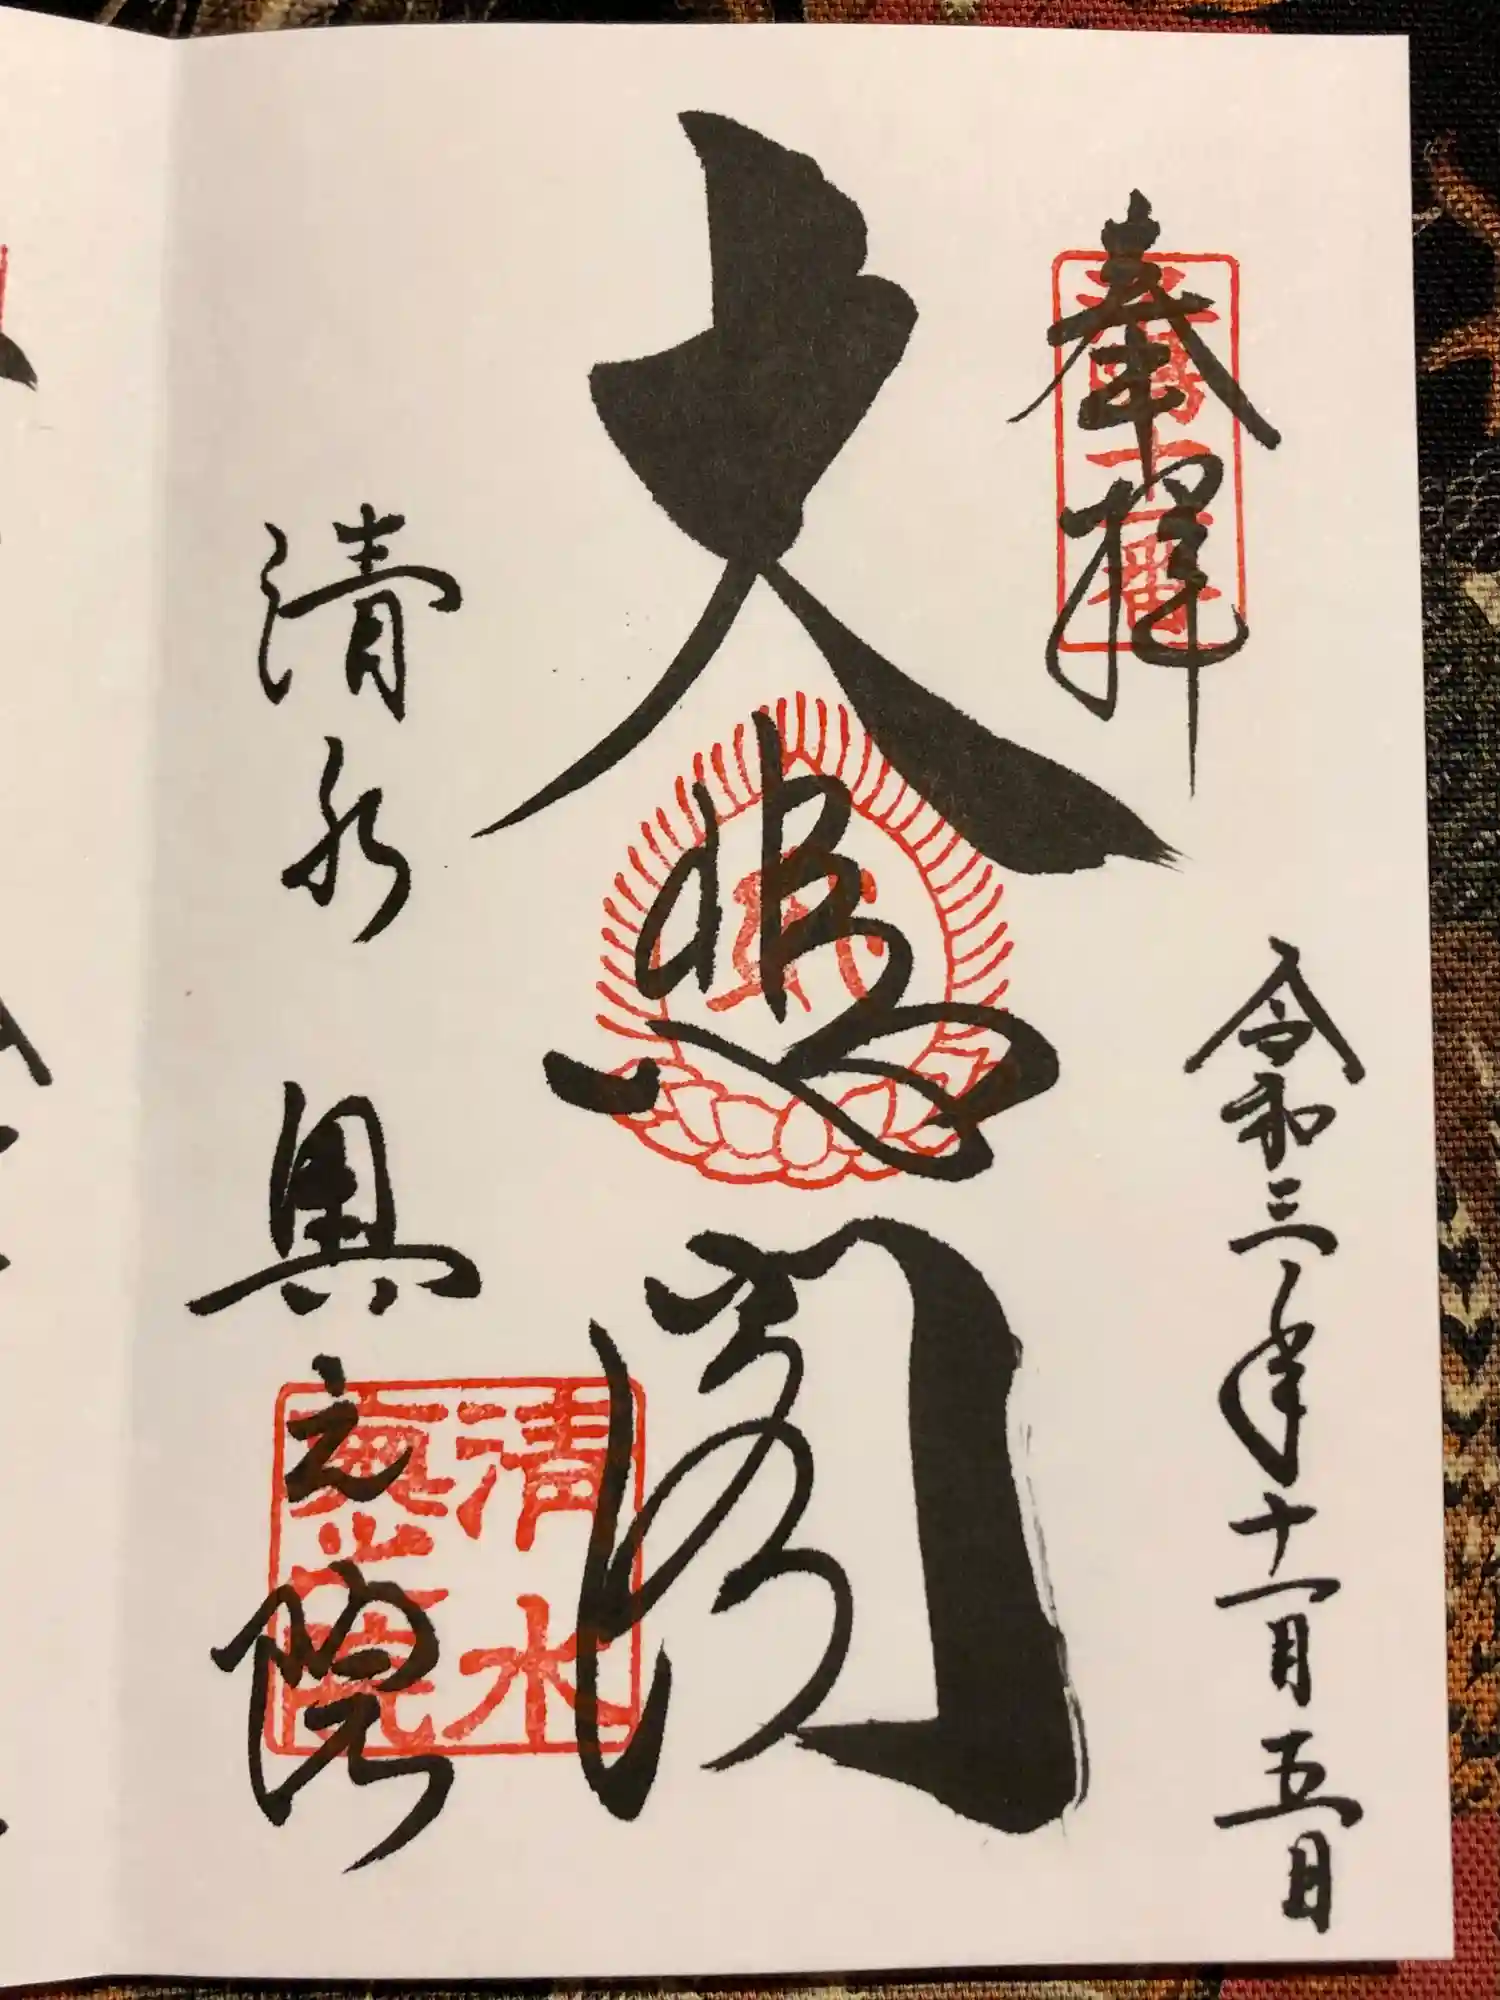 奉拝
令和三年十一月五日
大悲閣
清水 奥之院
清水
奥之院